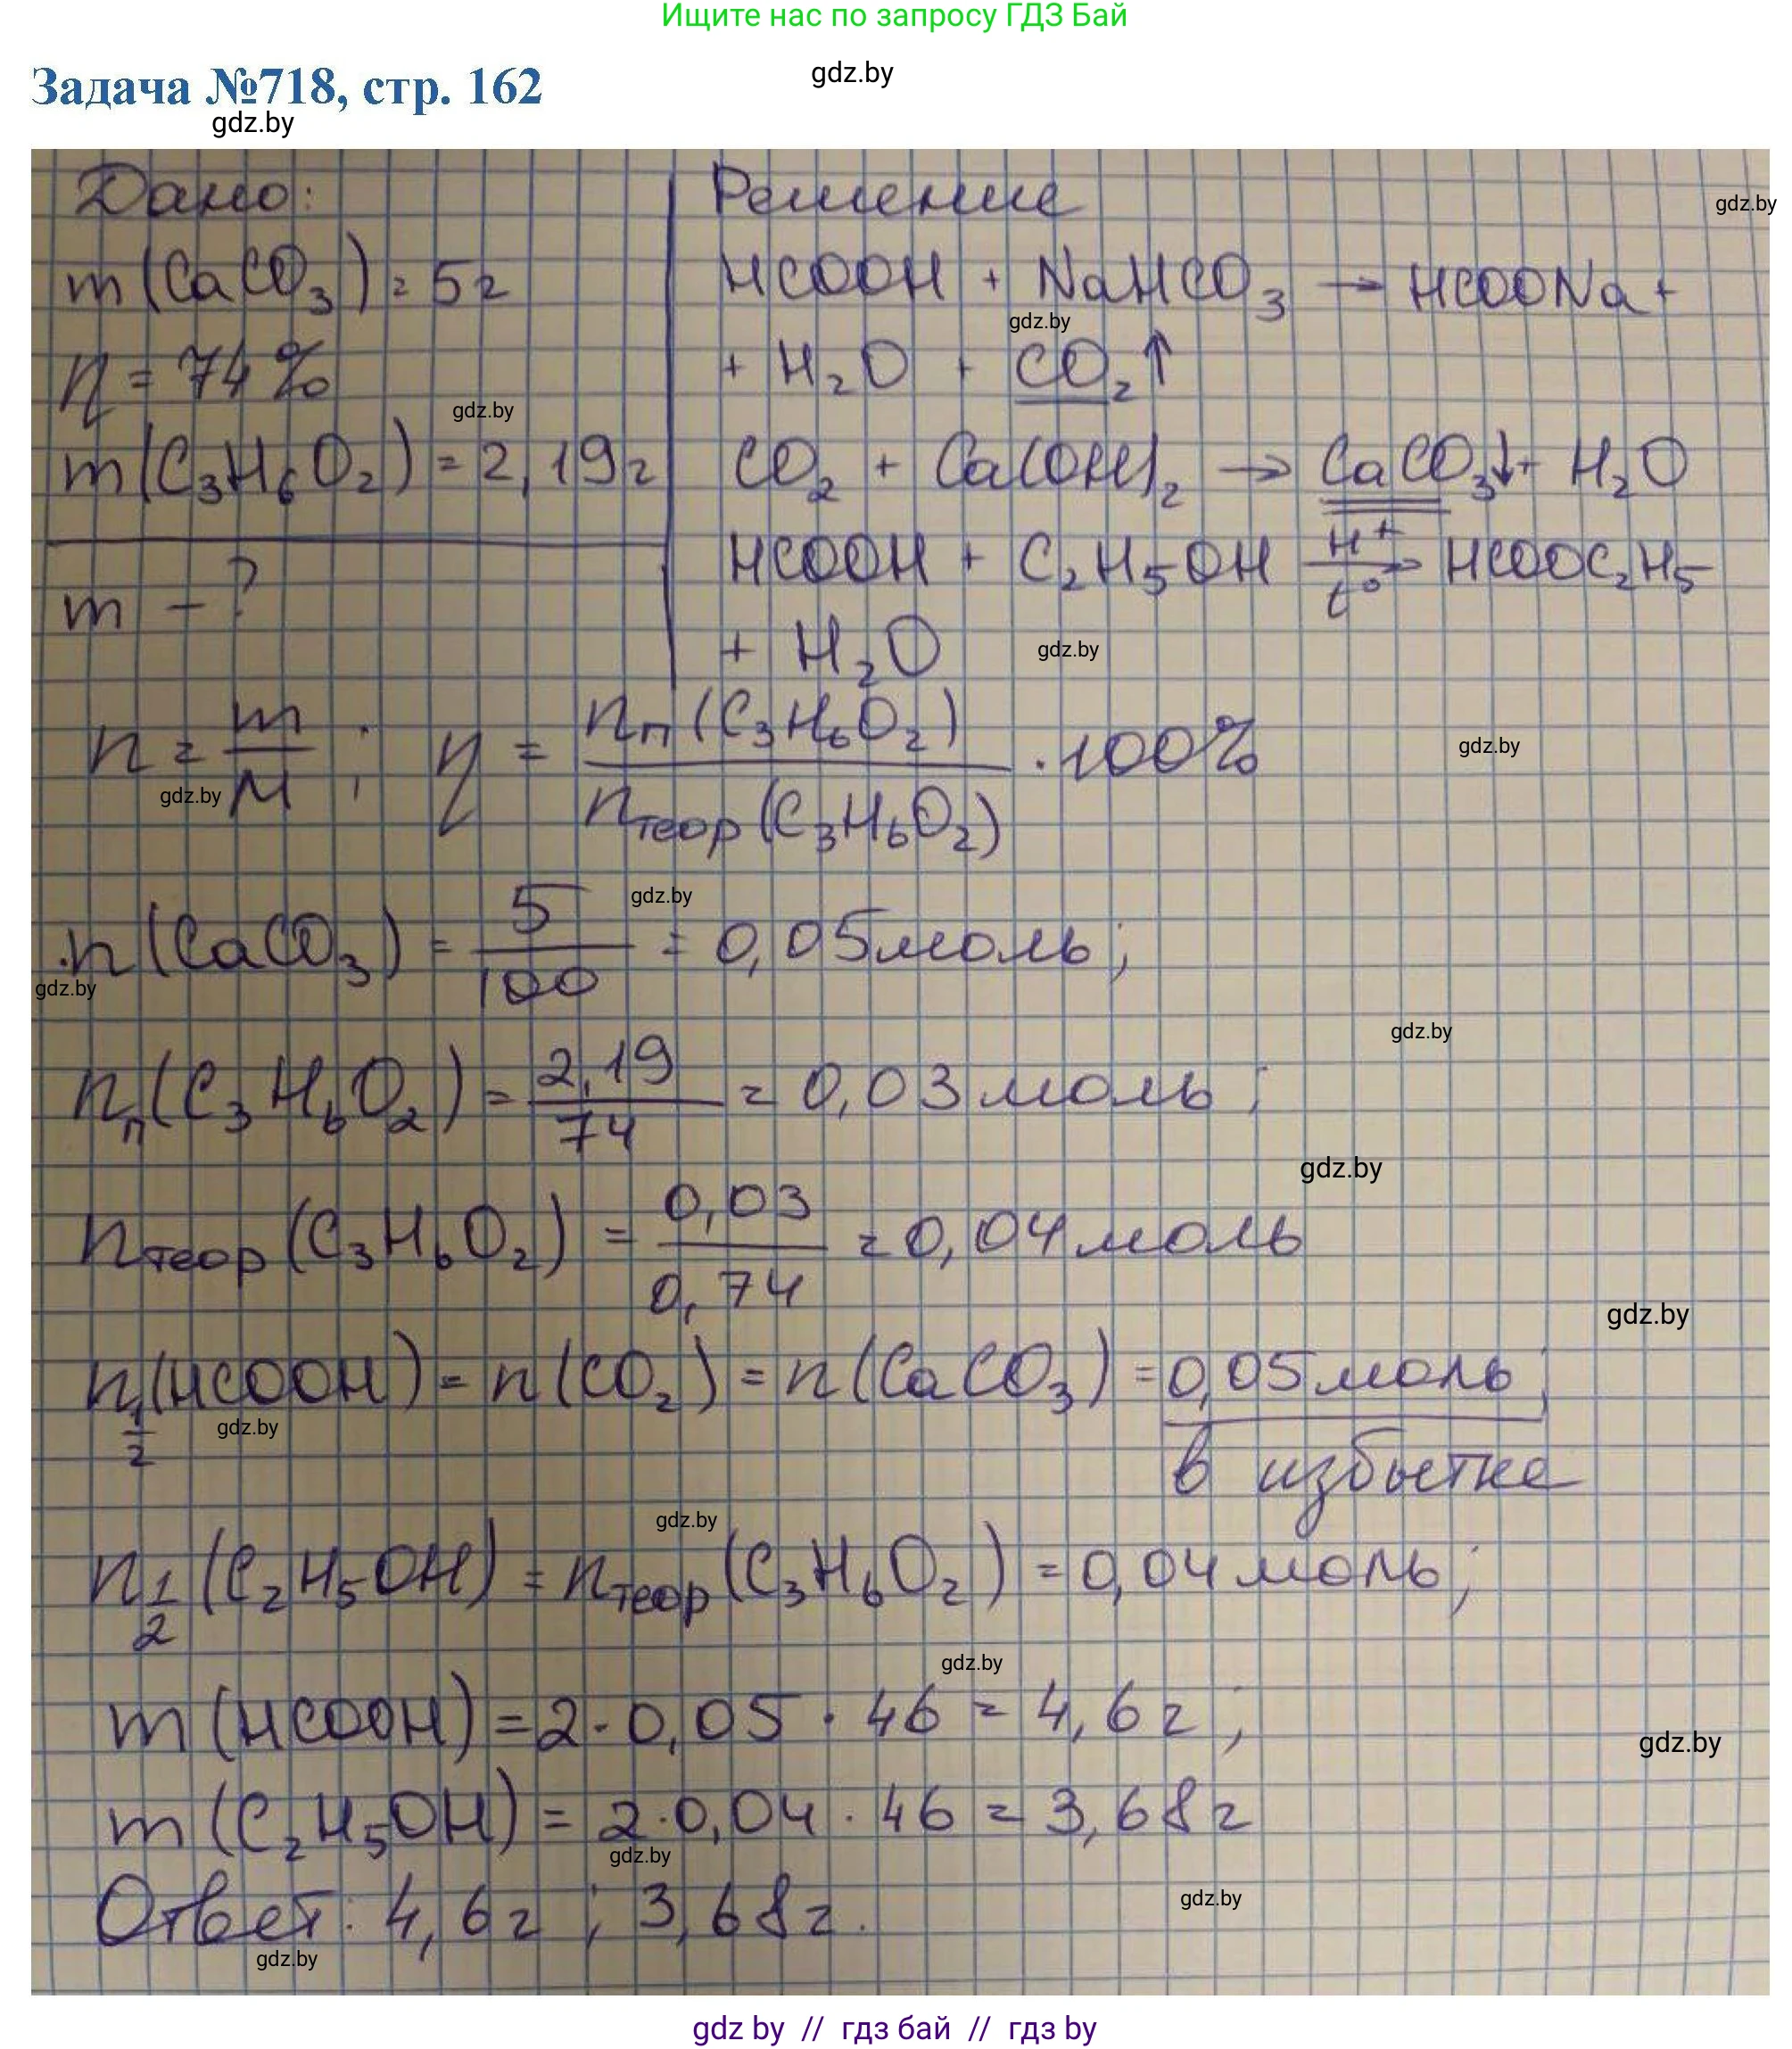 Ищите нас по запросу ГДЗ Бай
Задача №718, стр. 162
gdz.by
gdz.by
Дано:
Решение
gdz.by
m(CaCO₃) = 5г
HCOOH + NaHCO₃ → HCOONa +
gdz.by
η = 74%
+ H₂O + CO₂↑
gdz.by
m(C₃H₆O₂) = 2,19г
CO₂ + Ca(OH)₂ → CaCO₃↓ + H₂O
m - ?
HCOOH + C₂H₅OH \xrightarrow[t°]{H⁺} HCOOC₂H₅
+ H₂O
gdz.by
n = m/M ; η = nп(C₃H₆O₂)/nтеор(C₃H₆O₂) · 100%
gdz.by
gdz.by
gdz.by
n(CaCO₃) = 5/100 = 0,05моль;
gdz.by
gdz.by
nп(C₃H₆O₂) = 2,19/74 = 0,03моль;
gdz.by
nтеор(C₃H₆O₂) = 0,03/0,74 = 0,04моль
gdz.by
n½(HCOOH) = n(CO₂) = n(CaCO₃) = 0,05моль;
gdz.by
в избытке
gdz.by
n½(C₂H₅OH) = nтеор(C₃H₆O₂) = 0,04моль;
gdz.by
m(HCOOH) = 2·0,05·46 = 4,6г;
gdz.by
m(C₂H₅OH) = 2·0,04·46 = 3,68г
gdz.by
Ответ: 4,6г; 3,68г.
gdz.by
gdz.by
gdz by // гдз бай // гдз by